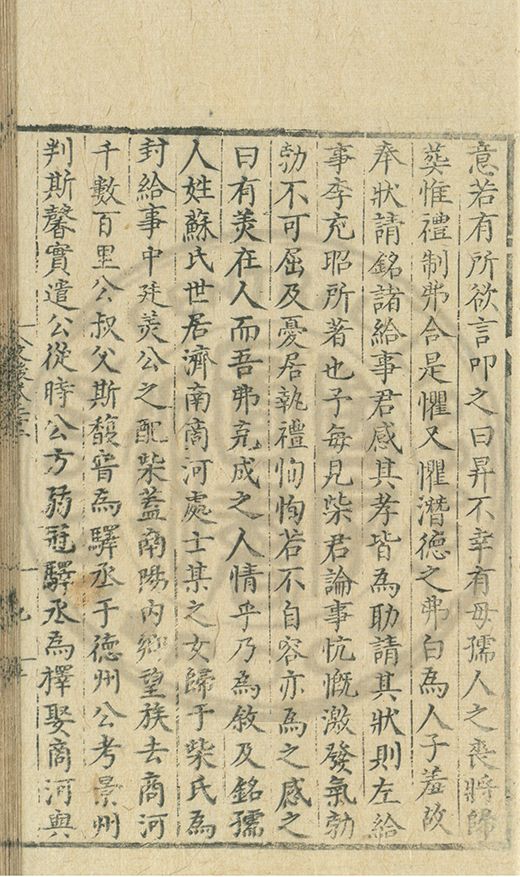 意若有所欲言叩之曰昇不幸有母孺人之喪將歸
葬惟禮制弗合是懼又懼潛德之弗白為人子羞故
奉狀請銘諸給事君感其孝皆為助請其狀則左給
事李充昭所著也予每見柴君論事忼慨激發氣勃
勃不可屈及憂居執禮恂恂若不自容亦為之感之
曰有美在人而吾弗克成之人情乎乃為敘及銘孺
人姓蘇氏世居濟南商河處士某之女歸于柴氏為
封給事中廷美公之配柴蓋南陽內鄉望族去商河
千數百里公叔父斯馥嘗為驛丞于德州公考景州
判斯馨實遣公從時公方弱冠驛丞為擇娶商河與